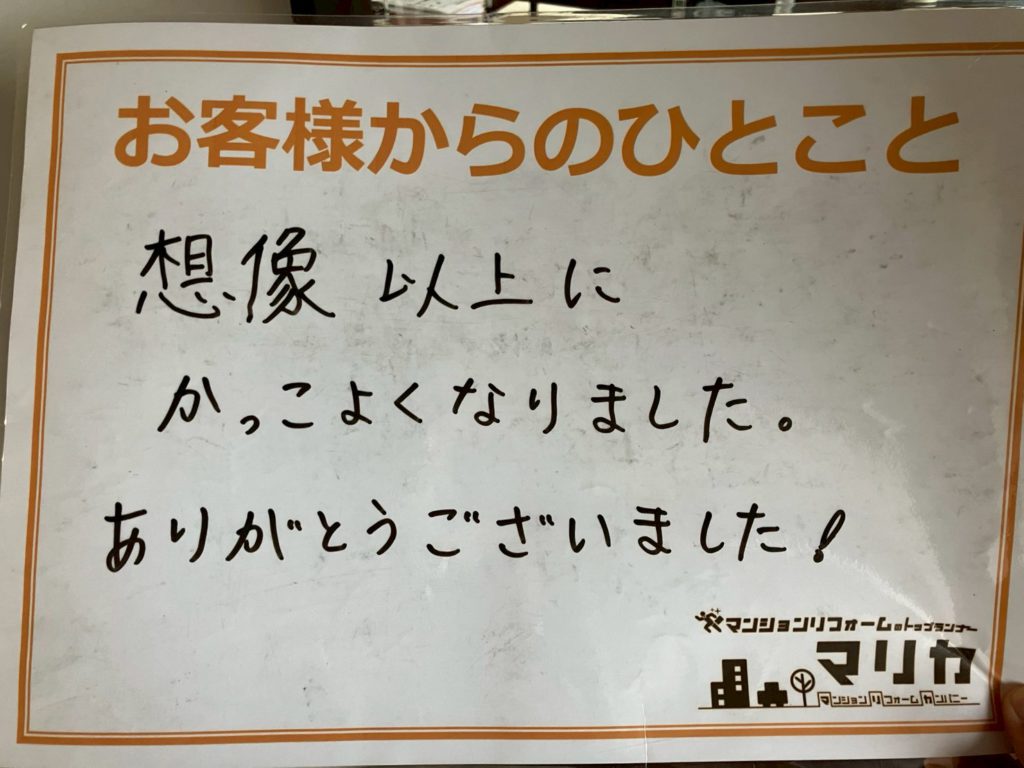 お客様からのひとこと
想像以上に
かっこよくなりました。
ありがとうございました!
マンションリフォームのトップランナー
マリカ
マンションリフォームカンパニー